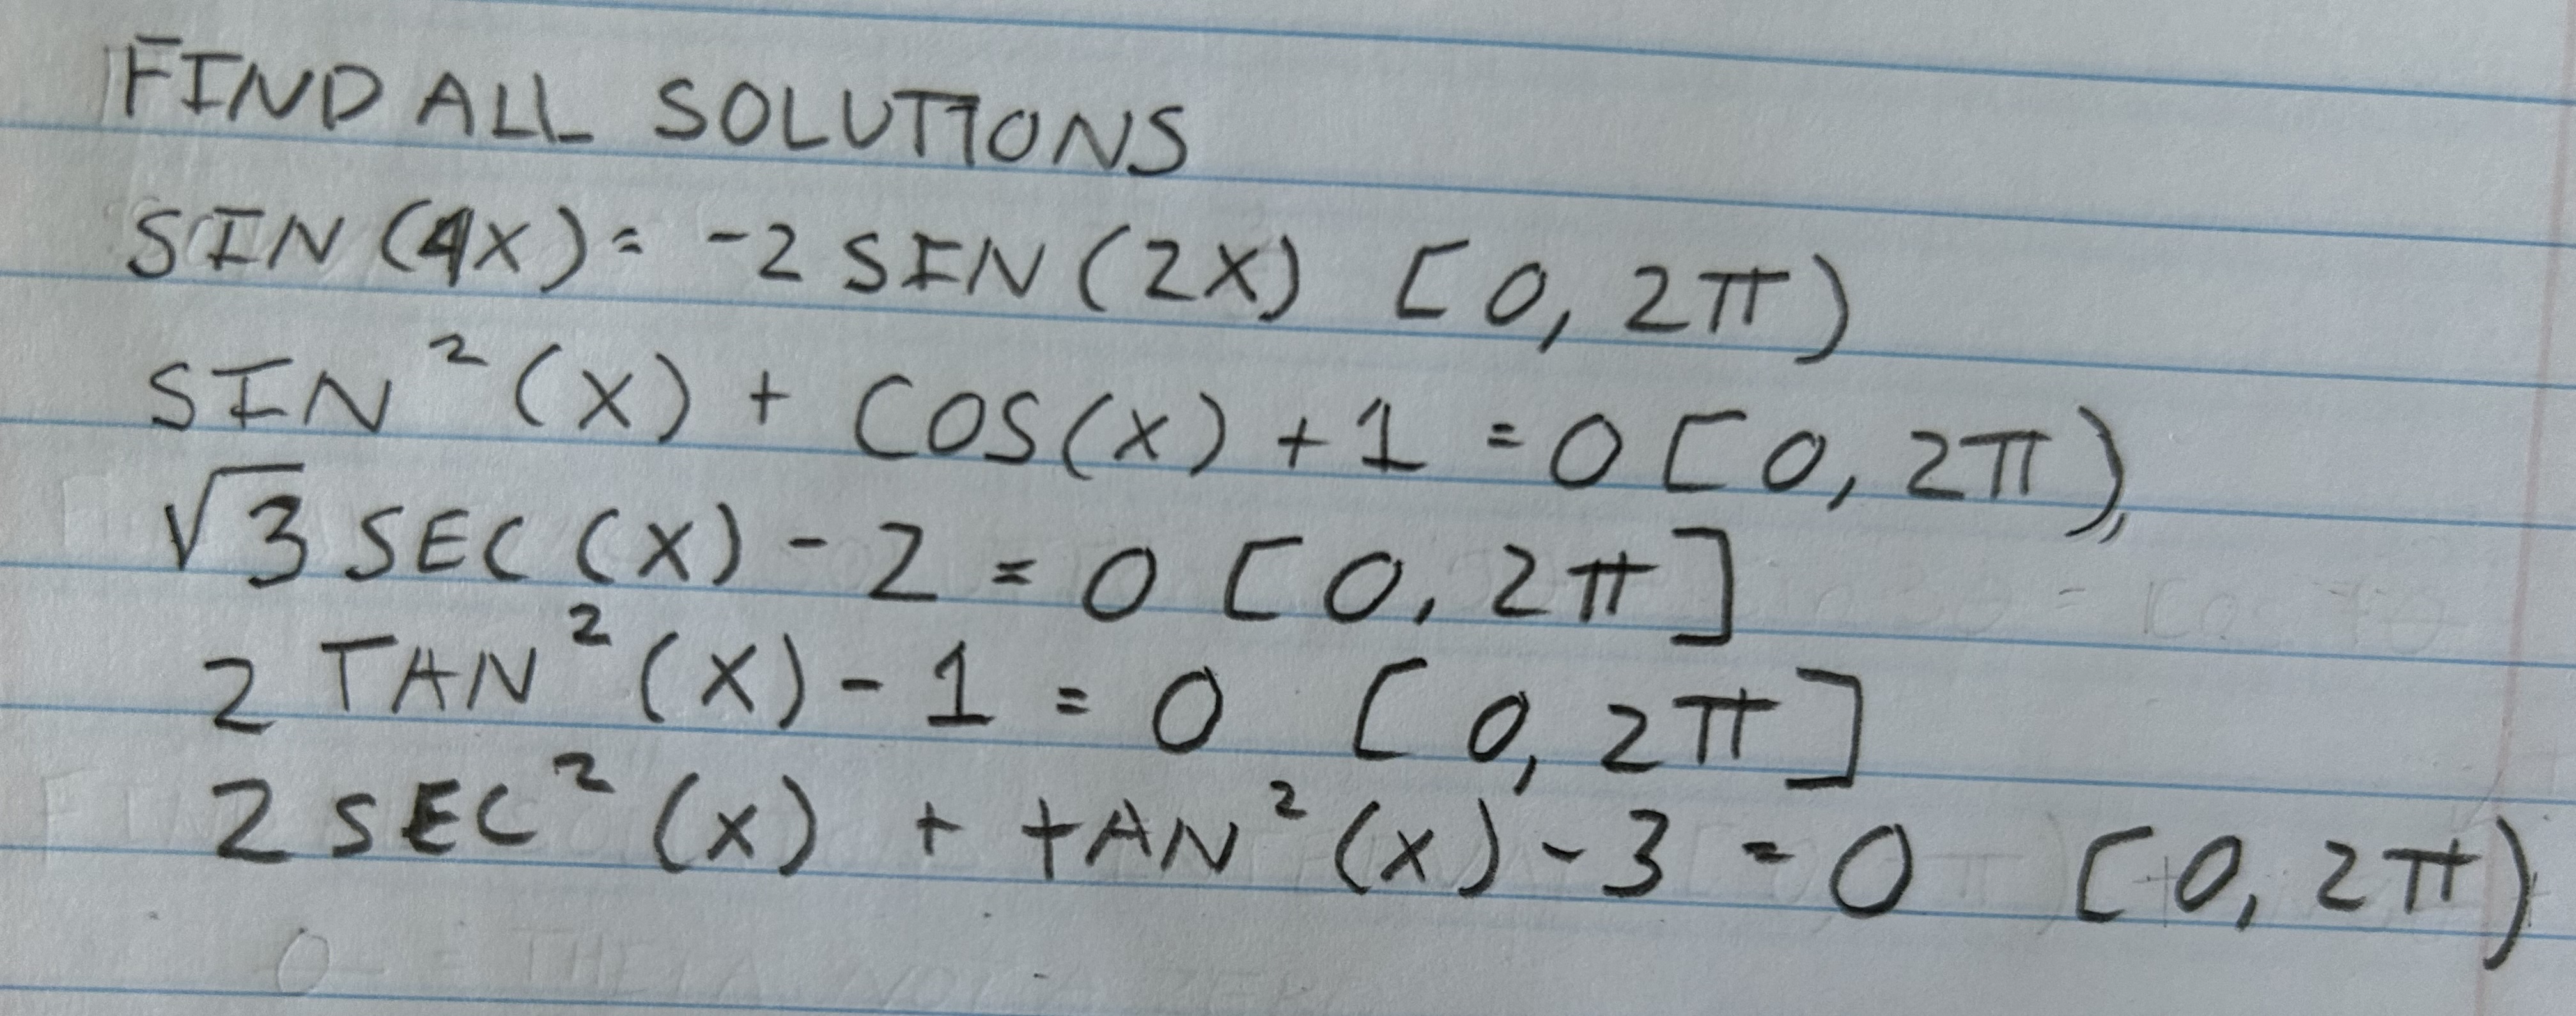 FIND ALL SOLUTIONS
SIN(4X) = -2 SIN(2X) [0, 2π)
SIN²(X) + COS(X) + 1 = 0 [0, 2π)
√3 SEC(X) - 2 = 0 [0, 2π]
2 TAN²(X) - 1 = 0 [0, 2π]
2 SEC²(X) + tAN²(X) - 3 = 0 [0, 2π)